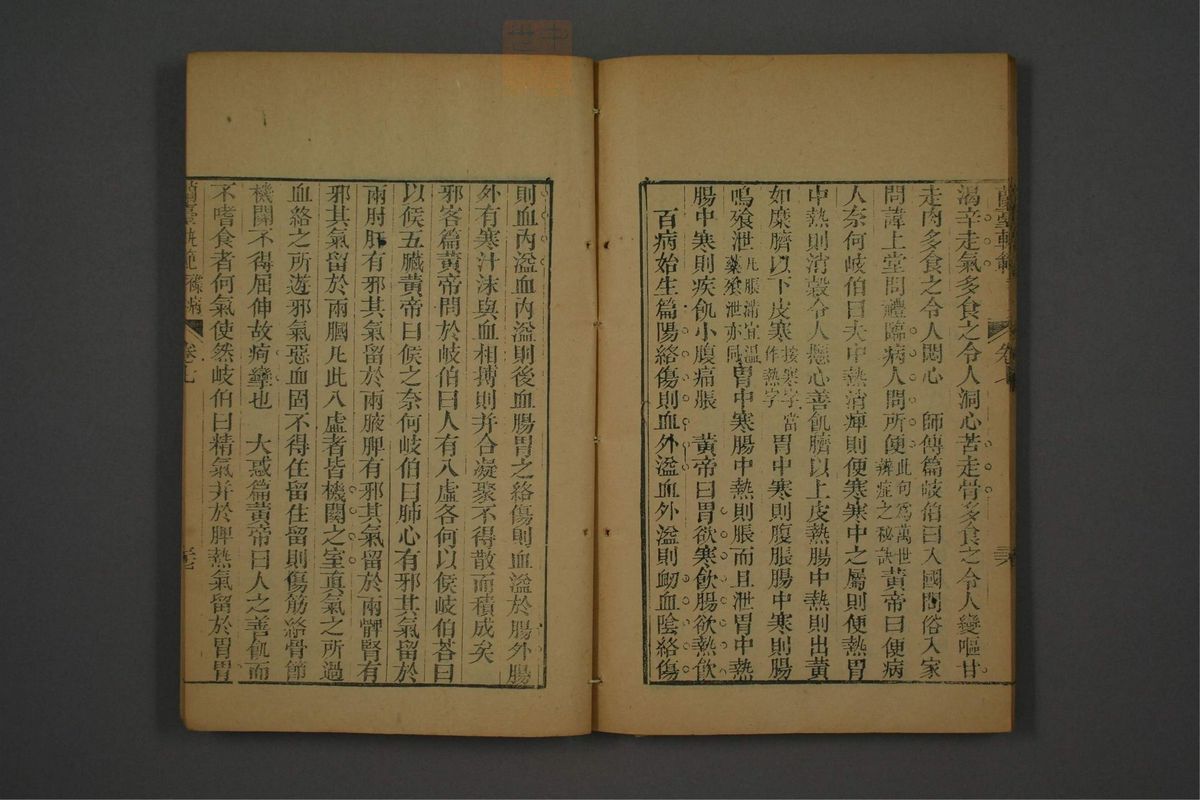 蘭臺軌範 卷七
渴辛走氣多食之令人洞心苦走骨多食之令人變嘔甘
走肉多食之令人悶心 師傳篇岐伯曰入國問俗入家
問諱上堂問禮臨病人問所便此句為萬世辨症之秘訣黃帝曰便病
人奈何岐伯曰夫中熱消癉則便寒寒中之屬則便熱胃
中熱則消穀令人懸心善飢臍以上皮熱腸中熱則出黃
如糜臍以下皮寒按寒字當作熱字胃中寒則腹脹腸中寒則腸
鳴飧泄凡脹滿宜溫藥飧泄亦同胃中寒腸中熱則脹而且泄胃中熱
腸中寒則疾飢小腹痛脹 黃帝曰胃欲寒飲腸欲熱飲
百病始生篇陽絡傷則血外溢血外溢則衂血陰絡傷
則血內溢血內溢則後血腸胃之絡傷則血溢於腸外腸
外有寒汁沫與血相搏則并合凝聚不得散而積成矣
邪客篇黃帝問於岐伯曰人有八虛各何以候岐伯荅曰
以候五臟黃帝曰候之奈何岐伯曰肺心有邪其氣留於
兩肘肝有邪其氣留於兩腋脾有邪其氣留於兩髀腎有
邪其氣留於兩膕凡此八虛者皆機關之室真氣之所過
血絡之所遊邪氣惡血固不得住留住留則傷筋絡骨節
機關不得屈伸故痀攣也 大惑篇黃帝曰人之善飢而
不嗜食者何氣使然岐伯曰精氣并於脾熱氣留於胃胃
蘭臺軌範 卷七